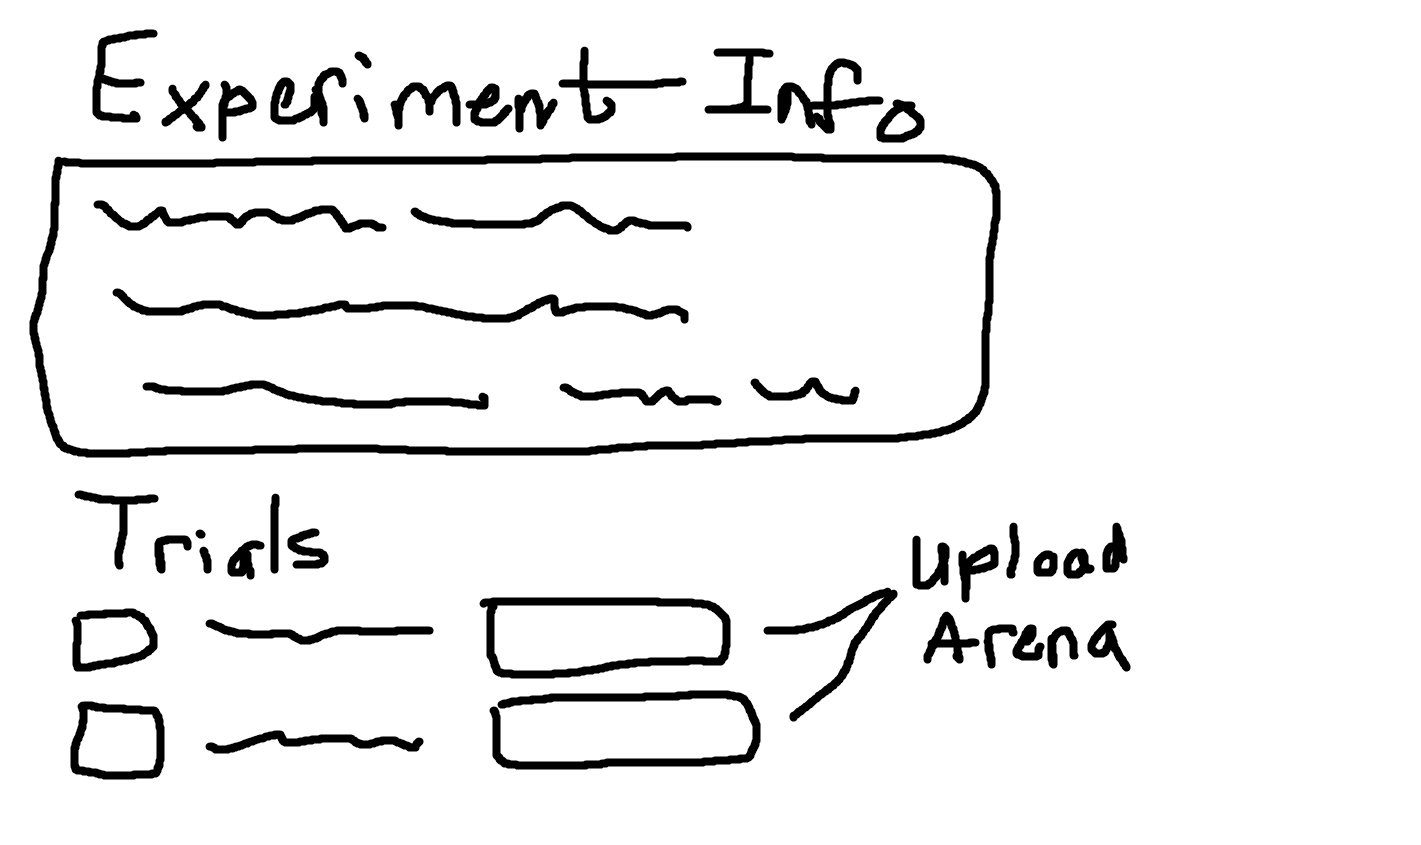 Experiment Info
Trials
Upload
Arena